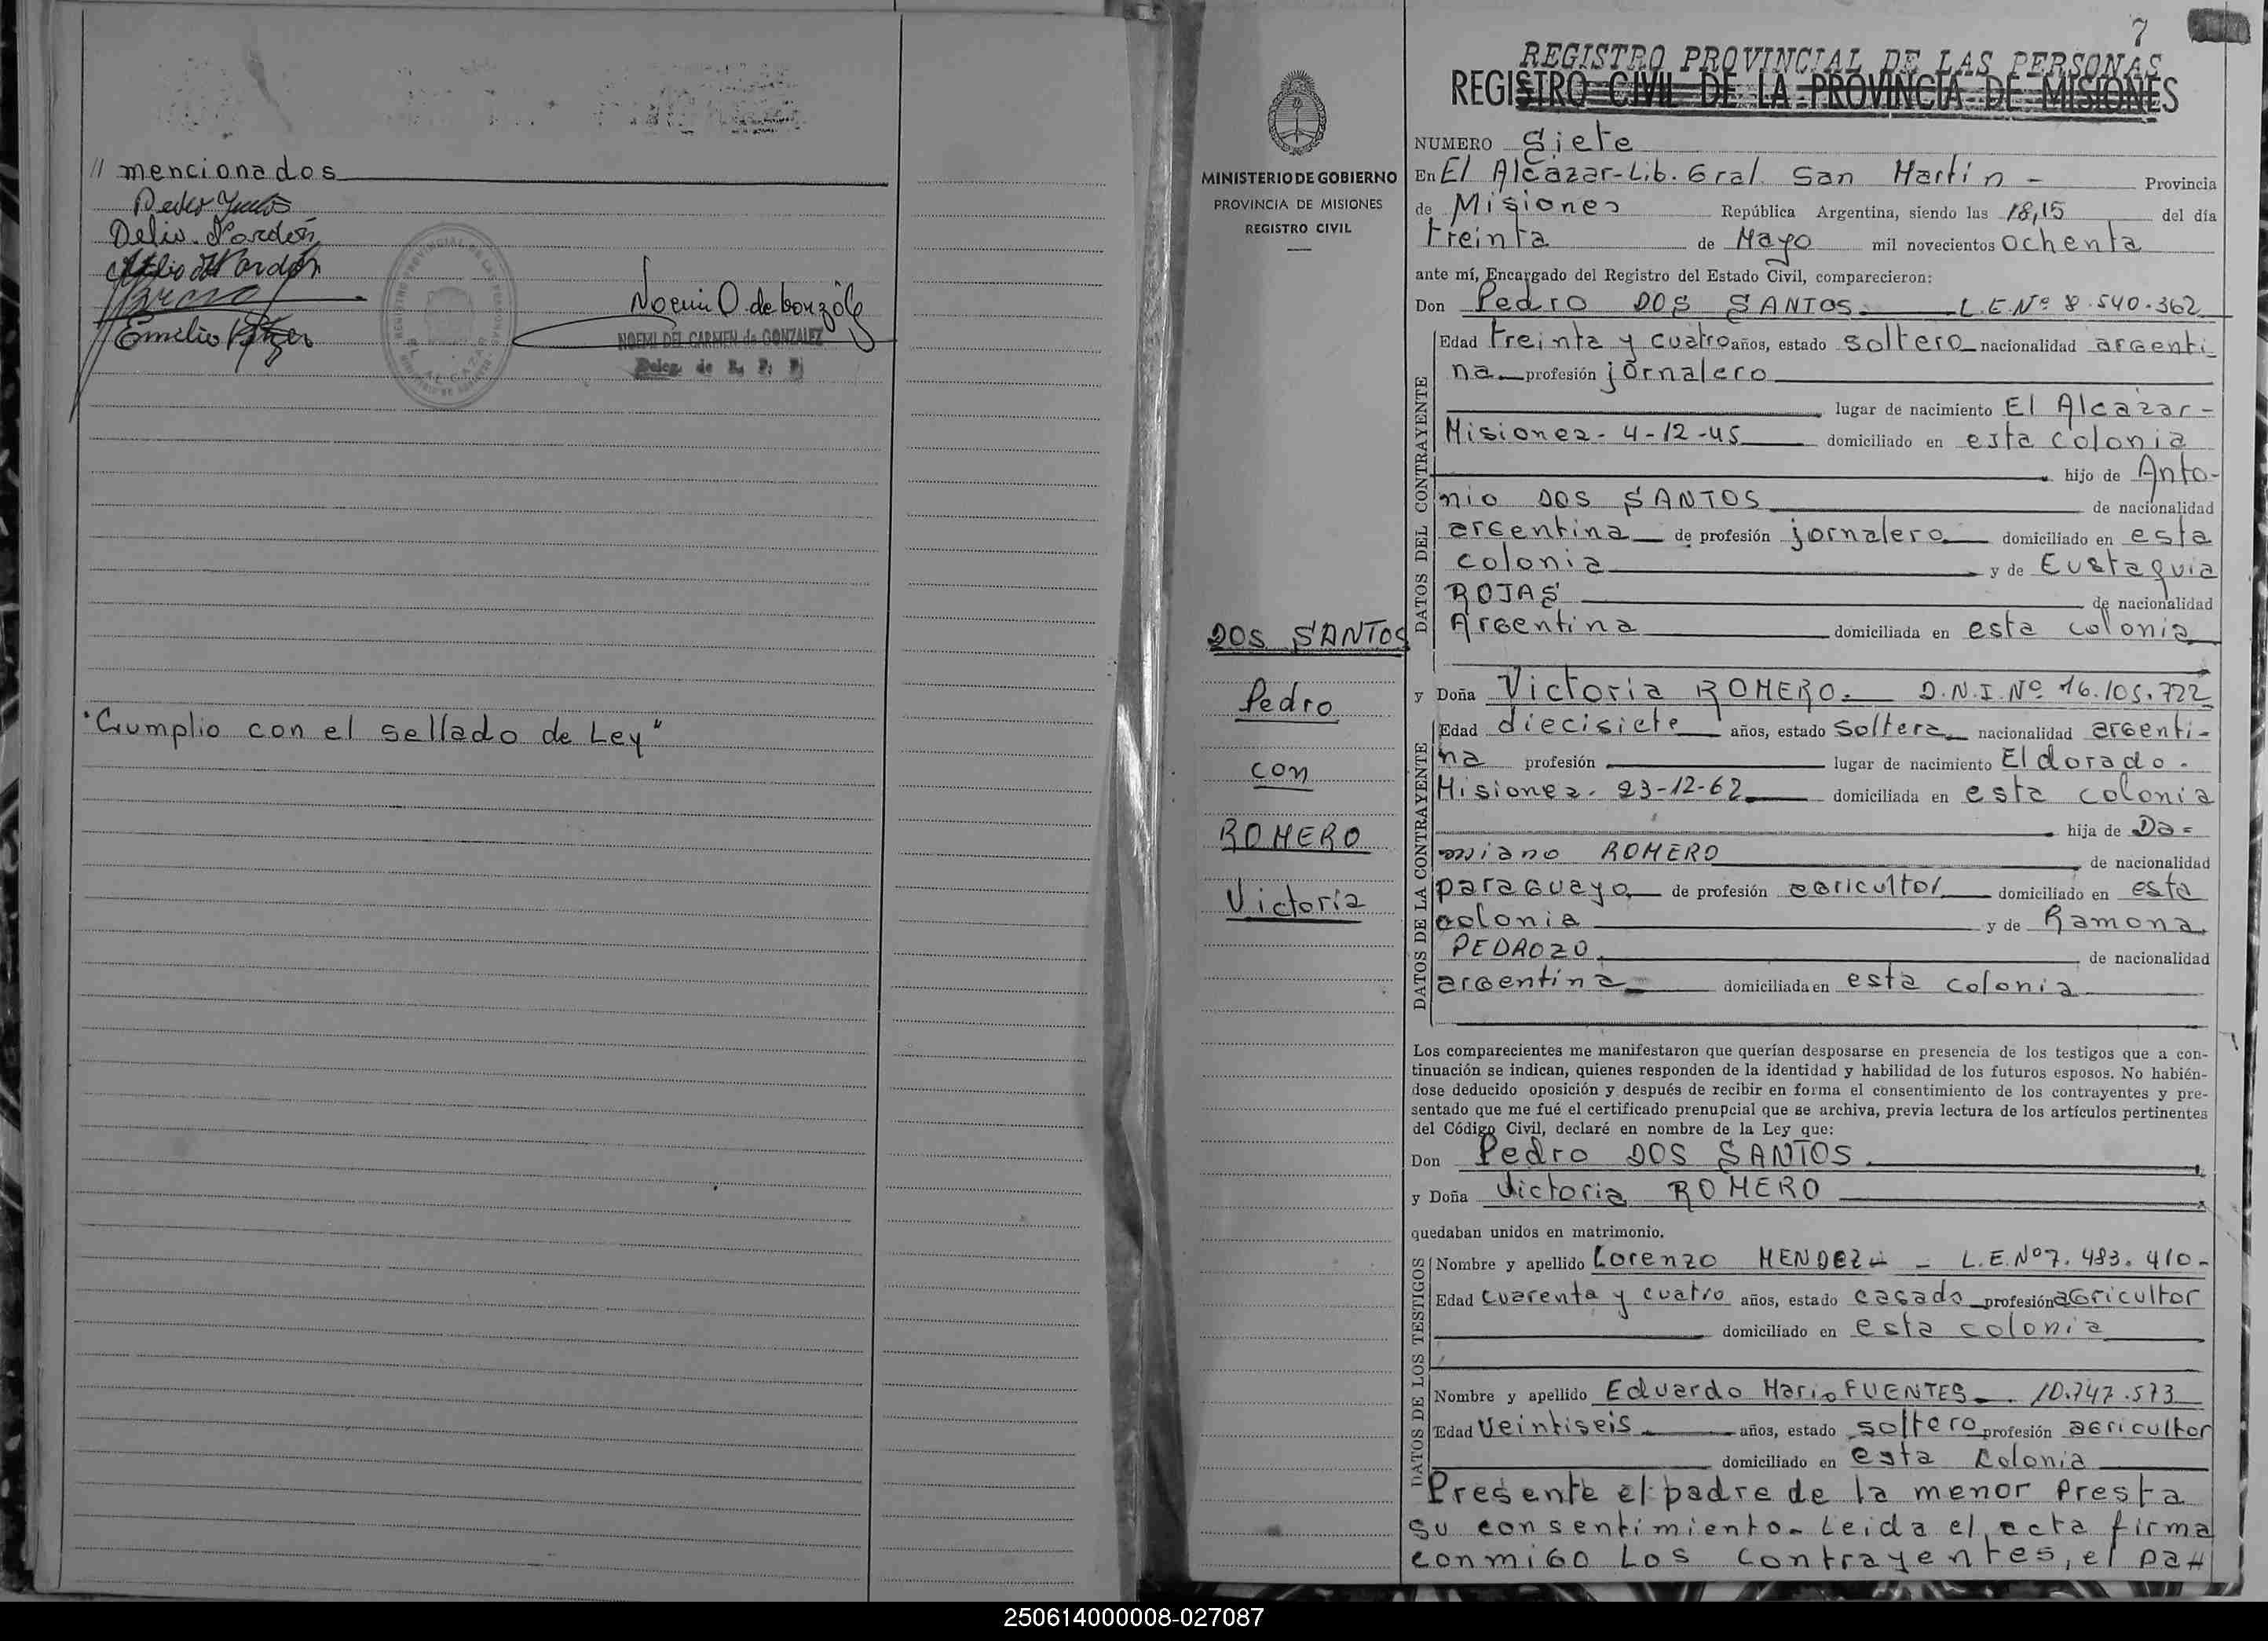 // mencionados
Delio Pardón
Emilio
Noemi D. de Gonzalez
NOEMI DEL CARMEN de GONZALEZ
Deleg. de R. P. P.
"Cumplio con el sellado de Ley"
MINISTERIO DE GOBIERNO
PROVINCIA DE MISIONES
REGISTRO CIVIL
DOS SANTOS
Pedro
con
ROMERO
Victoria
7
REGISTRO PROVINCIAL DE LAS PERSONAS
REGISTRO CIVIL DE LA PROVINCIA DE MISIONES
NUMERO Siete
En El Alcázar-Lib. Gral. San Martín - Provincia
de Misiones República Argentina, siendo las 18,15 del día
treinta de Mayo mil novecientos ochenta
ante mí, Encargado del Registro del Estado Civil, comparecieron:
Don Pedro DOS SANTOS. L.E.Nº 8.540.362
DATOS DEL CONTRAYENTE
Edad treinta y cuatro años, estado soltero nacionalidad argenti-
na profesión jornalero
lugar de nacimiento El Alcazar-
Misiones- 4-12-45 domiciliado en esta colonia
hijo de Anto-
nio DOS SANTOS de nacionalidad
argentina de profesión jornalero domiciliado en esta
colonia y de Eustaquia
ROJAS de nacionalidad
Argentina domiciliada en esta colonia
y Doña Victoria ROMERO. D.N.I.Nº 16.105.722
DATOS DE LA CONTRAYENTE
Edad diecisiete años, estado soltera nacionalidad argenti-
na profesión lugar de nacimiento Eldorado.
Misiones. 23-12-62 domiciliada en esta colonia
hija de Da=
miano ROMERO de nacionalidad
paraguayo de profesión agricultor domiciliado en esta
colonia y de Ramona
PEDROZO de nacionalidad
argentina domiciliada en esta colonia
Los comparecientes me manifestaron que querían desposarse en presencia de los testigos que a con-
tinuación se indican, quienes responden de la identidad y habilidad de los futuros esposos. No habién-
dose deducido oposición y después de recibir en forma el consentimiento de los contrayentes y pre-
sentado que me fué el certificado prenupcial que se archiva, previa lectura de los artículos pertinentes
del Código Civil, declaré en nombre de la Ley que:
Don Pedro DOS SANTOS.
y Doña Victoria ROMERO
quedaban unidos en matrimonio.
DATOS DE LOS TESTIGOS
Nombre y apellido Lorenzo MENDEZ - L.E.Nº 7.483.410-
Edad cuarenta y cuatro años, estado casado profesión agricultor
domiciliado en esta colonia
Nombre y apellido Eduardo Mario FUENTES. 10.747.573
Edad Veintiseis años, estado soltero profesión agricultor
domiciliado en esta Colonia
Presente el padre de la menor Presta
su consentimiento. Leida el acta firma
conmigo Los contrayentes, el pa//
250614000008-027087